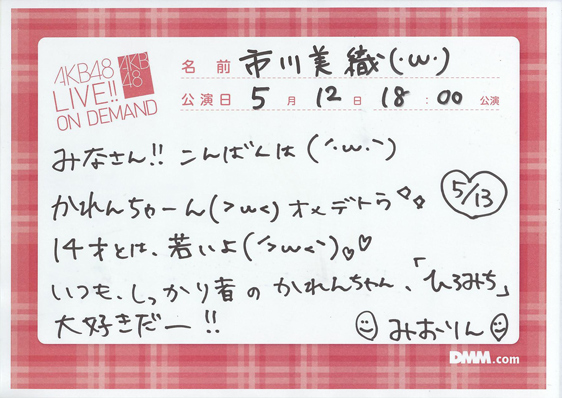 AKB48
LIVE!!
ON DEMAND
AKB
48
名前 市川美織(・ω・)
公演日 5月12日 18:00 公演
みなさん!! こんばんは(´・ω・`)
かれんちゃーん(>ω<) オメデトウ
5/13
14才とは、若いよ(´>ω<`)♡♡
いつも、しっかり者のかれんちゃん、「ひろみち」
大好きだー!!
みおりん
DMM.com